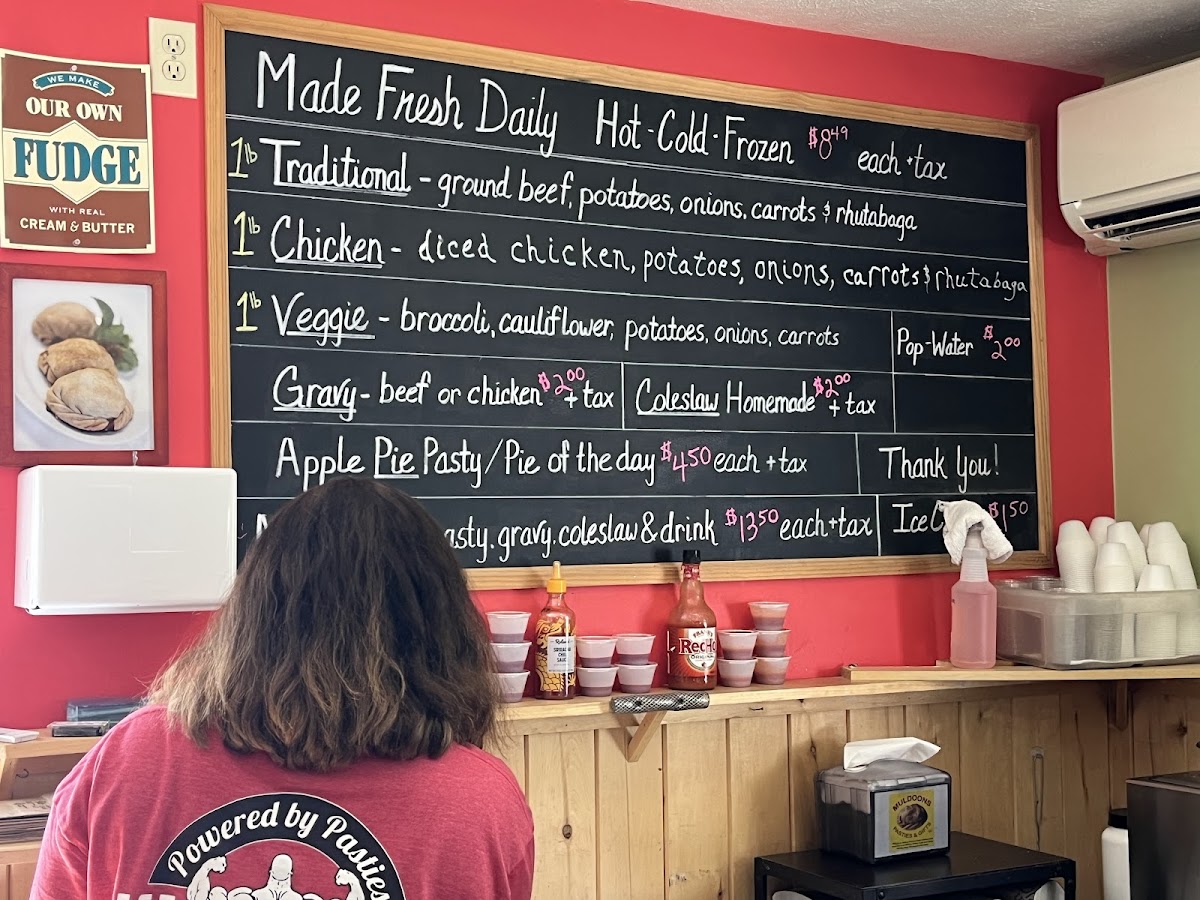 WE MAKE
OUR OWN
FUDGE
WITH REAL
CREAM & BUTTER
Made Fresh Daily Hot-Cold-Frozen $8.49 each + tax
1lb Traditional - ground beef, potatoes, onions, carrots & rhutabaga
1lb Chicken - diced chicken, potatoes, onions, carrots & rhutabaga
1lb Veggie - broccoli, cauliflower, potatoes, onions, carrots
Pop-Water $2.00
Gravy - beef or chicken $2.00 + tax
Coleslaw Homemade $2.00 + tax
Apple Pie Pasty/Pie of the day $4.50 each + tax
Thank You!
asty, gravy, coleslaw & drink $13.50 each + tax
Ice $1.50
SRIRACHA
CHILI
SAUCE
FRANK'S
RedHot
ORIGINAL
MULDOONS
PASTIES & GIFTS
Powered by Pasties